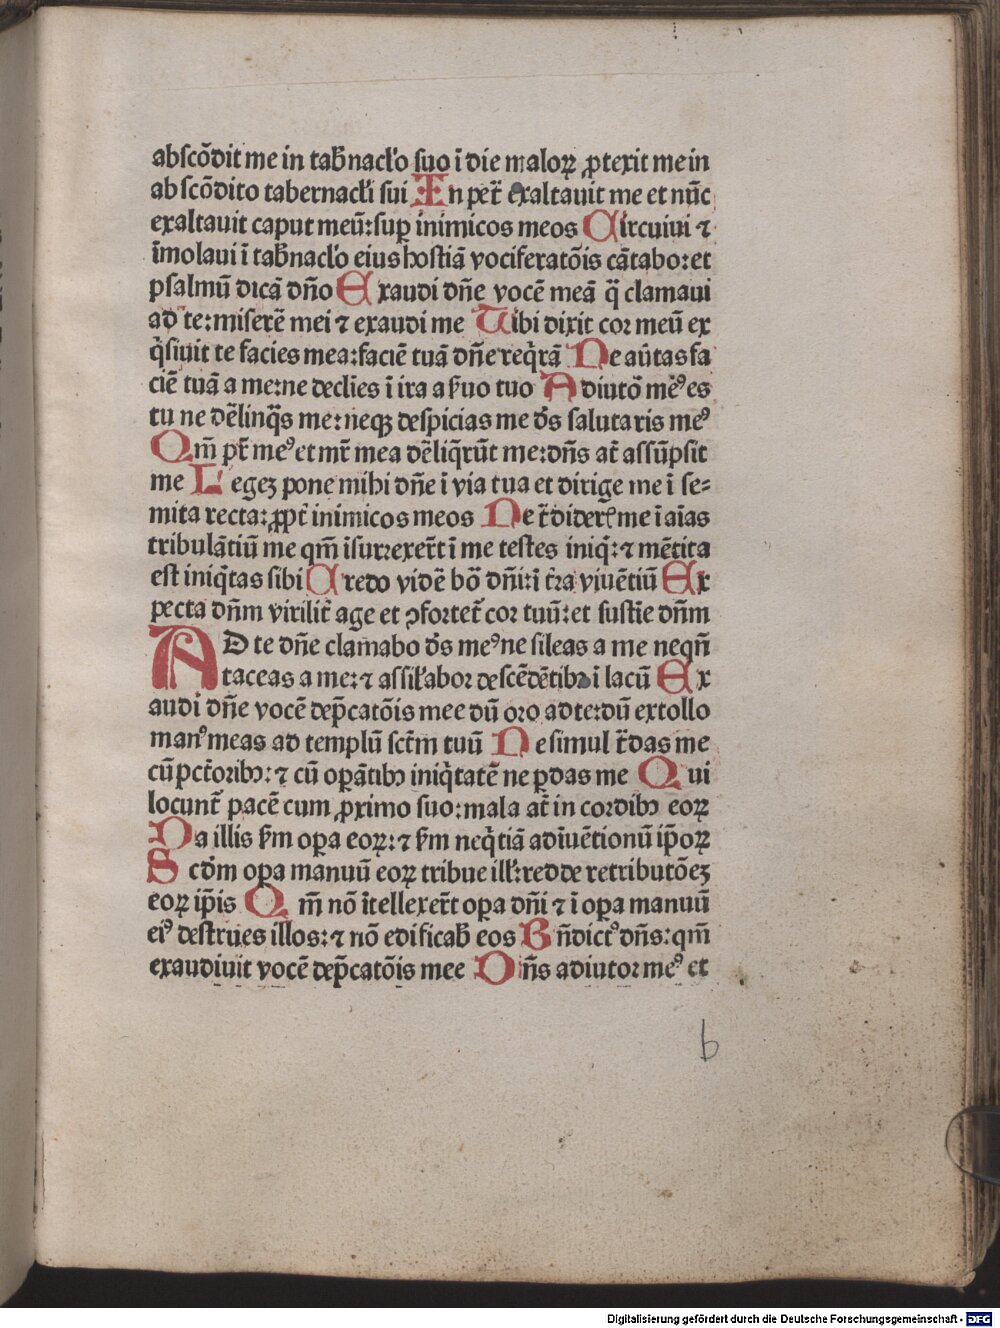 abscõdit me in tab̃nacło suo ĩ die maloꝝ ꝓtexit me in
abscõdito tabernacłi sui In petr̃ exaltauit me et nũc
exaltauit caput meũ:suꝑ inimicos meos Circuiui ⁊
ĩmolaui ĩ tab̃nacło eius hostiã vociferatõis cãtabo:et
psalmũ dicã dñо Exaudi dñe vocẽ meã q̃ clamaui
ad te:miserẽ mei ⁊ exaudi me Tibi dixit cor meũ ex
q̇siuit te facies mea:faciẽ tuã dñe req̇rã Ne aũtas fa
ciẽ tuã a me:ne declĩes ĩ ira a ẜuo tuo Adiutõ meꝰ es
tu ne dẽlinq̃s me:neqꝫ despicias me dẽs salutaris meꝰ
Qm̃ pr̃ meꝰ et mr̃ mea dẽliq̇rũt me:dñs at̃ assũpsit
me Legeꝫ pone mihi dñe ĩ via tua et dirige me ĩ se⸗
mita recta:ꝓpt̃ inimicos meos Ne tr̃dider̃ me ĩ aĩas
tribulãtiũ me qm̃ ĩsurrexer̃t ĩ me testes iniq̇:⁊ mẽtita
est iniq̇tas sibi Credo vidẽ bõ dñi:ĩ tr̃a viuẽtiũ Ex
pecta dñm virilit̃ age et ꝯfortet̃ cor tuũ:et sustĩe dñm
AD te dñe clamabo dẽs meꝰ ne sileas a me neqñ
taceas a me:⁊ assiłabor descẽdẽtibꝫ ĩ lacũ Ex
audi dñe vocẽ dep̃catõis mee dũ oro ad te:dũ extollo
manꝰ meas ad templũ sctm̃ tuũ Ne simul tr̃das me
cũ pctõribꝫ:⁊ cũ oꝑãtibꝫ iniq̇tatẽ ne ꝑdas me Qui
locunt̃ pacẽ cum ꝓximo suo:mala at̃ in cordibꝫ eoꝝ
Da illis ẜm oꝑa eoꝝ:⁊ ẜm neq̇tiã adĩuẽtionũ ip̃oꝝ
Scdm̃ oꝑa manuũ eoꝝ tribue iłł:redde retributõeꝫ
eoꝝ ip̃is Qm̃ nõ ĩtellexer̃t oꝑa dñi ⁊ ĩ oꝑa manuũ
eiꝰ destrues illos:⁊ nõ edificab̃ eos Bñdictꝰ dñs:qm̃
exaudiuit vocẽ dep̃catõis mee Dñs adiutor meꝰ et
b
Digitalisierung gefördert durch die Deutsche Forschungsgemeinschaft - DFG